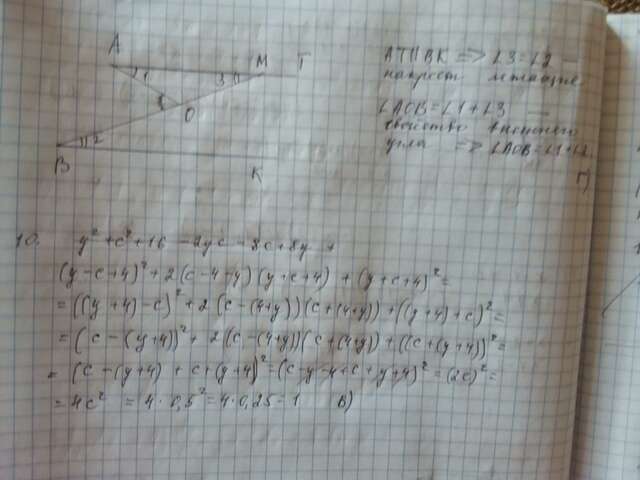 A M T
1 3
O
2
B K
AT || BK => ∠3=∠2 —
накрест лежащие
∠AOB = ∠1 + ∠3 —
свойство внешнего
угла => ∠AOB = ∠1+∠2
Г)
10. y² + c² + 16 - 2yc - 8c + 8y +
(y - c + 4)² + 2(c - 4 - y)(y + c + 4) + (y + c + 4)² =
= ((y + 4) - c)² + 2(c - (4+y))(c + (4+y)) + ((y + 4) + c)² =
= (c - (y+4))² + 2(c - (4+y))(c + (4+y)) + ((c + (y+4))² =
= (c - (y+4) + c + (y+4)² = (c - y - 4 + c + y + 4)² = (2c)² =
= 4c² = 4 · 0,5² = 4 · 0,25 = 1 В)